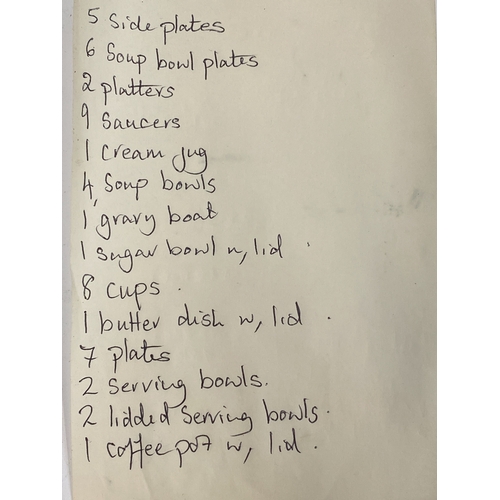 5 Side plates
6 Soup bowl plates
2 platters
9 Saucers
1 Cream jug
4, Soup bowls
1 gravy boat
1 sugar bowl w, lid
8 cups.
1 butter dish w, lid.
7 plates
2 Serving bowls.
2 lidded Serving bowls.
1 coffee pot w, lid.